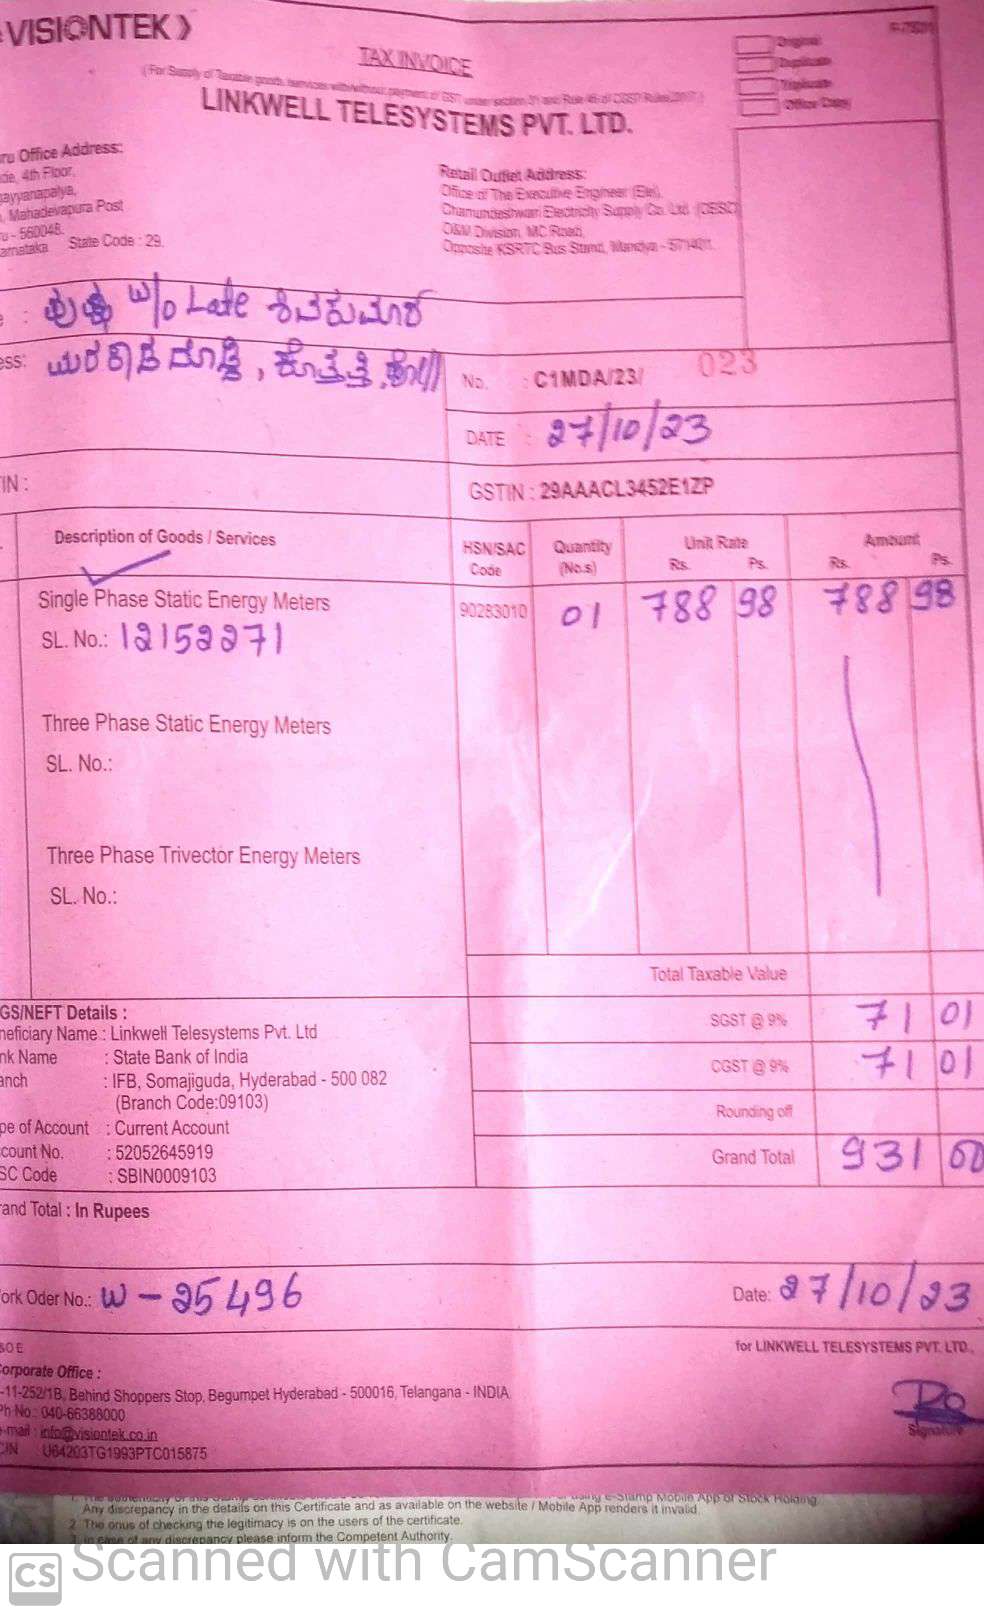 VISIONTEK
TAX INVOICE
(For Supply of Taxable goods, services with/without payment of GST under section 31 and Rule 46 of CGST Rules 2017)
LINKWELL TELESYSTEMS PVT. LTD.
Original
Duplicate
Triplicate
Office Copy
ru Office Address:
4th Floor,
ayyanapalya,
Mahadevapura Post
u - 560048.
arnataka State Code : 29.
Retail Outlet Address:
Office of The Executive Engineer (Ele),
Chamundeshwari Electricity Supply Co. Ltd. (CESC)
O&M Division, MC Road,
Opposite KSRTC Bus Stand, Mandya - 571401.
: W/o Late ಶಿವಕುಮಾರ್
ess: ಕೊತ್ತತ್ತಿ
No. : C1MDA/23/ 023
DATE : 27/10/23
IN :
GSTIN : 29AAACL3452E1ZP
Description of Goods / Services
HSN/SAC Code
Quantity (No.s)
Unit Rate Rs. Ps.
Amount Rs. Ps.
Single Phase Static Energy Meters 90283010 01 788 98 788 98
SL. No.: 12152271
Three Phase Static Energy Meters
SL. No.:
Three Phase Trivector Energy Meters
SL. No.:
Total Taxable Value
SGST @ 9% 71 01
CGST @ 9% 71 01
Rounding off
Grand Total 931 00
GS/NEFT Details :
neficiary Name : Linkwell Telesystems Pvt. Ltd
nk Name : State Bank of India
anch : IFB, Somajiguda, Hyderabad - 500 082
(Branch Code:09103)
pe of Account : Current Account
count No. : 52052645919
SC Code : SBIN0009103
and Total : In Rupees
ork Oder No.: W - 25496
Date: 27/10/23
for LINKWELL TELESYSTEMS PVT. LTD.,
orporate Office :
-11-252/1B, Behind Shoppers Stop, Begumpet Hyderabad - 500016, Telangana - INDIA
Ph No.: 040-66388000
-mail : info@visiontek.co.in
CIN U64203TG1993PTC015875
Signature
using e-Stamp Mobile App of Stock Holding
Any discrepancy in the details on this Certificate and as available on the website / Mobile App renders it invalid.
2 The onus of checking the legitimacy is on the users of the certificate.
3 In case of any discrepancy please inform the Competent Authority.
CS Scanned with CamScanner